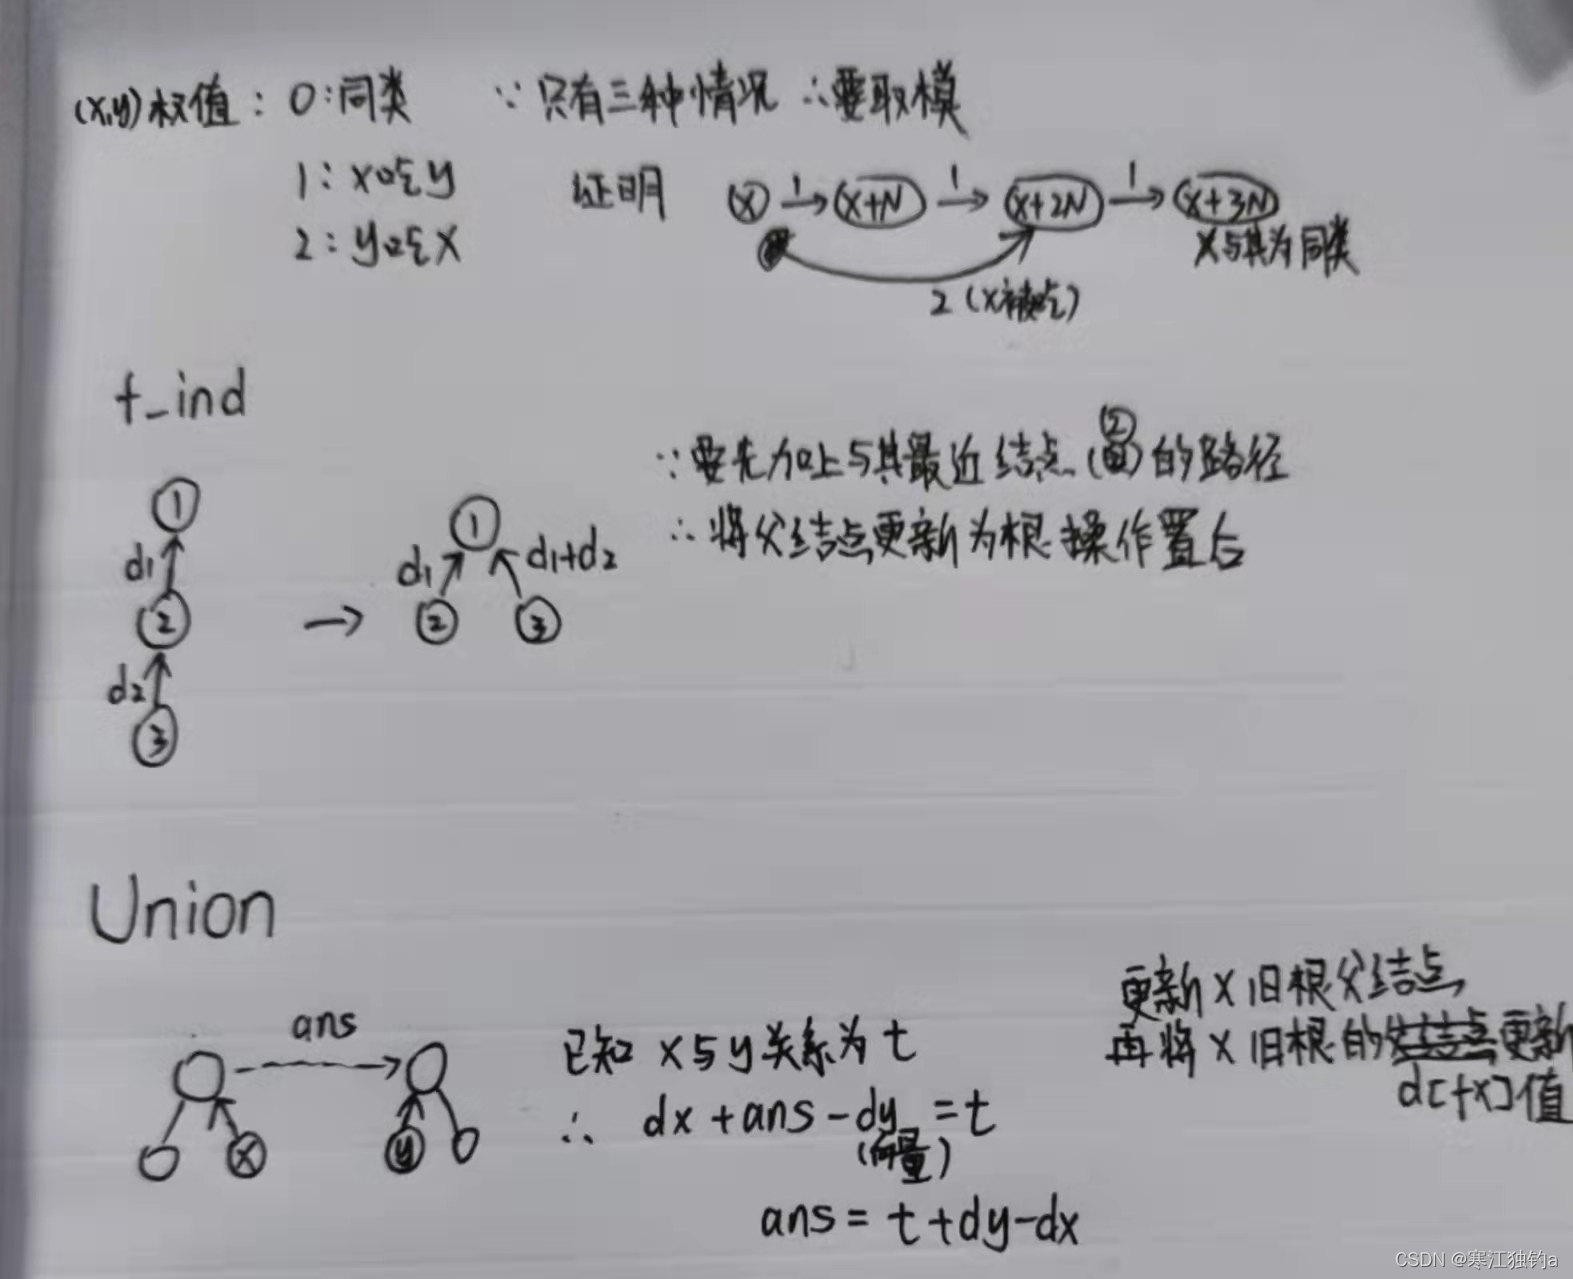 (x,y)权值：0：同类 ∵只有三种情况 ∴要取模
1：x吃y
2：y吃x
证明 x 1→ x+N 1→ x+2N 1→ x+3N
x与其为同类
2（x被吃）
f_ind
1 d1 2 d2 3 → 1 d1 2 d1+d2 3
2
∵要先加上与其最近结点（）的路径
∴将父结点更新为根操作置后
Union
ans
x y
已知 x与y关系为t
∴ dx+ans-dy=t
（向量）
ans=t+dy-dx
更新x旧根父结点
再将x旧根的更新
d[fx]值
CSDN @寒江独钓a